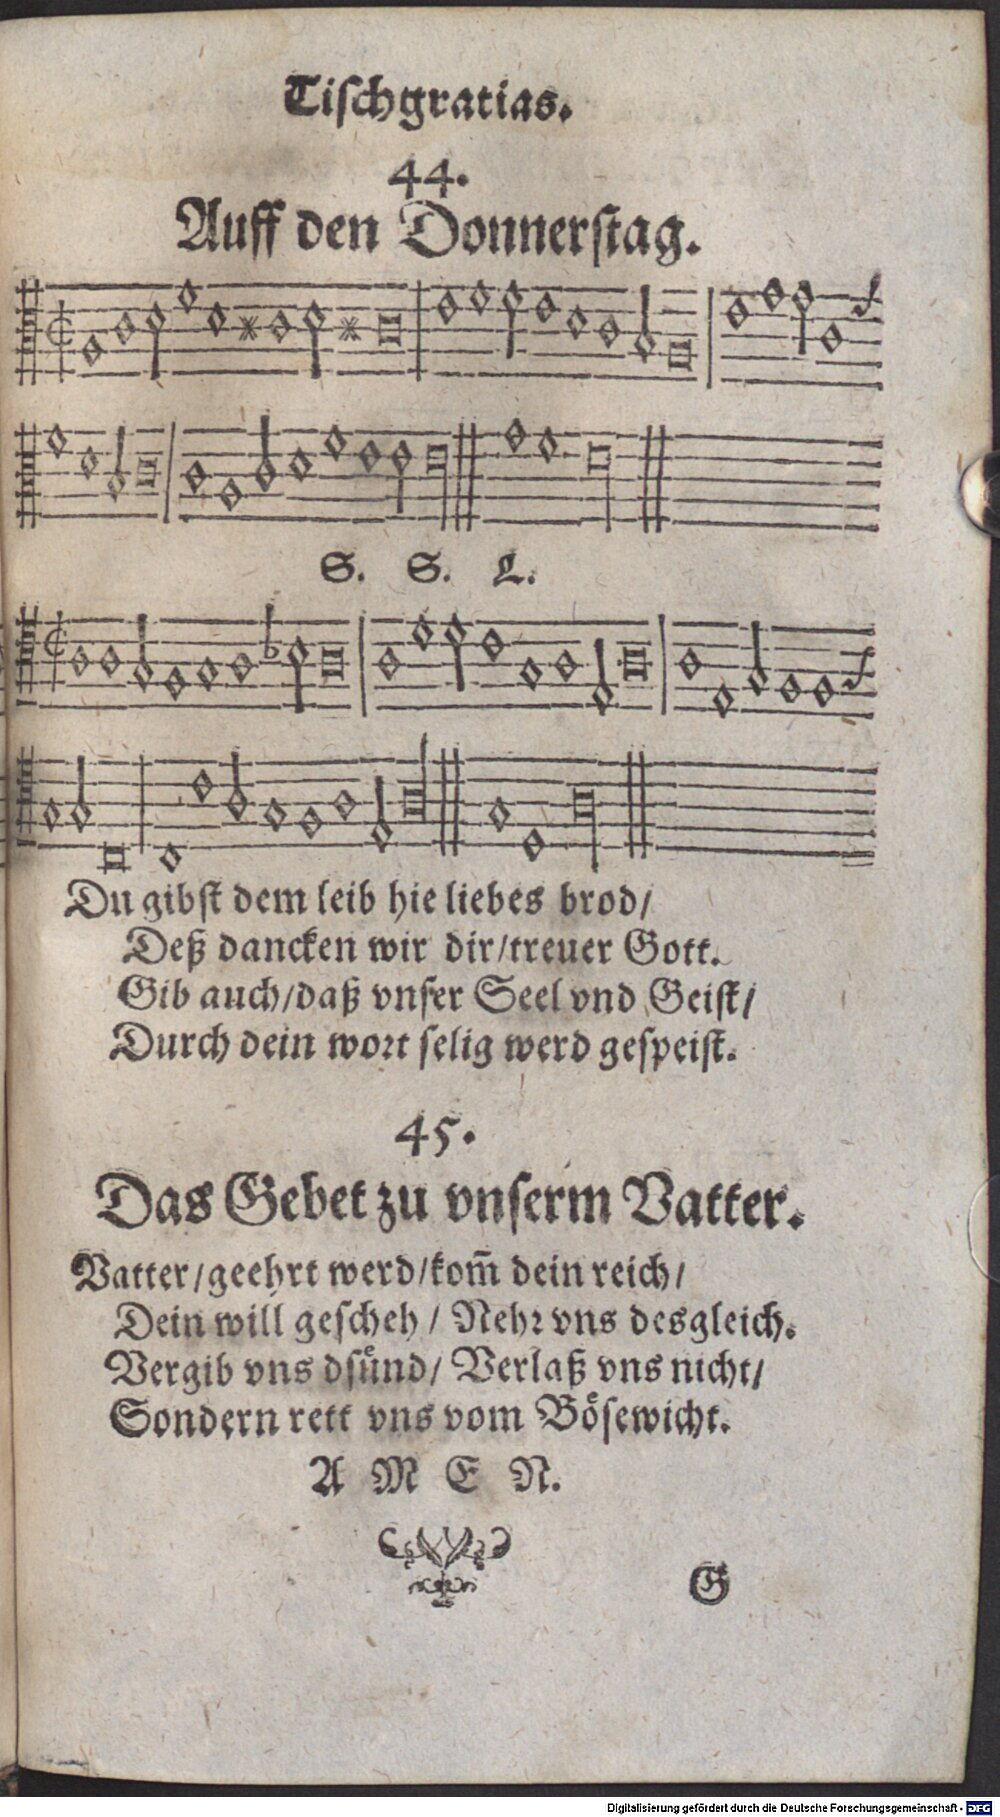 Tiſchgratias.
44.
Auff den Donnerſtag.
S. S. L.
Du gibſt dem leib hie liebes brod/
Deß dancken wir dir/treuer Gott.
Gib auch/daß vnſer Seel vnd Geiſt/
Durch dein wort ſelig werd geſpeiſt.
45.
Das Gebet zu vnſerm Vatter.
Vatter/geehrt werd/kom̃ dein reich/
Dein will geſcheh/ Nehr vns desgleich.
Vergib vns dſuͤnd/ Verlaß vns nicht/
Sondern rett vns vom Boͤſewicht.
A M E N.
G
Digitalisierung gefördert durch die Deutsche Forschungsgemeinschaft - DFG